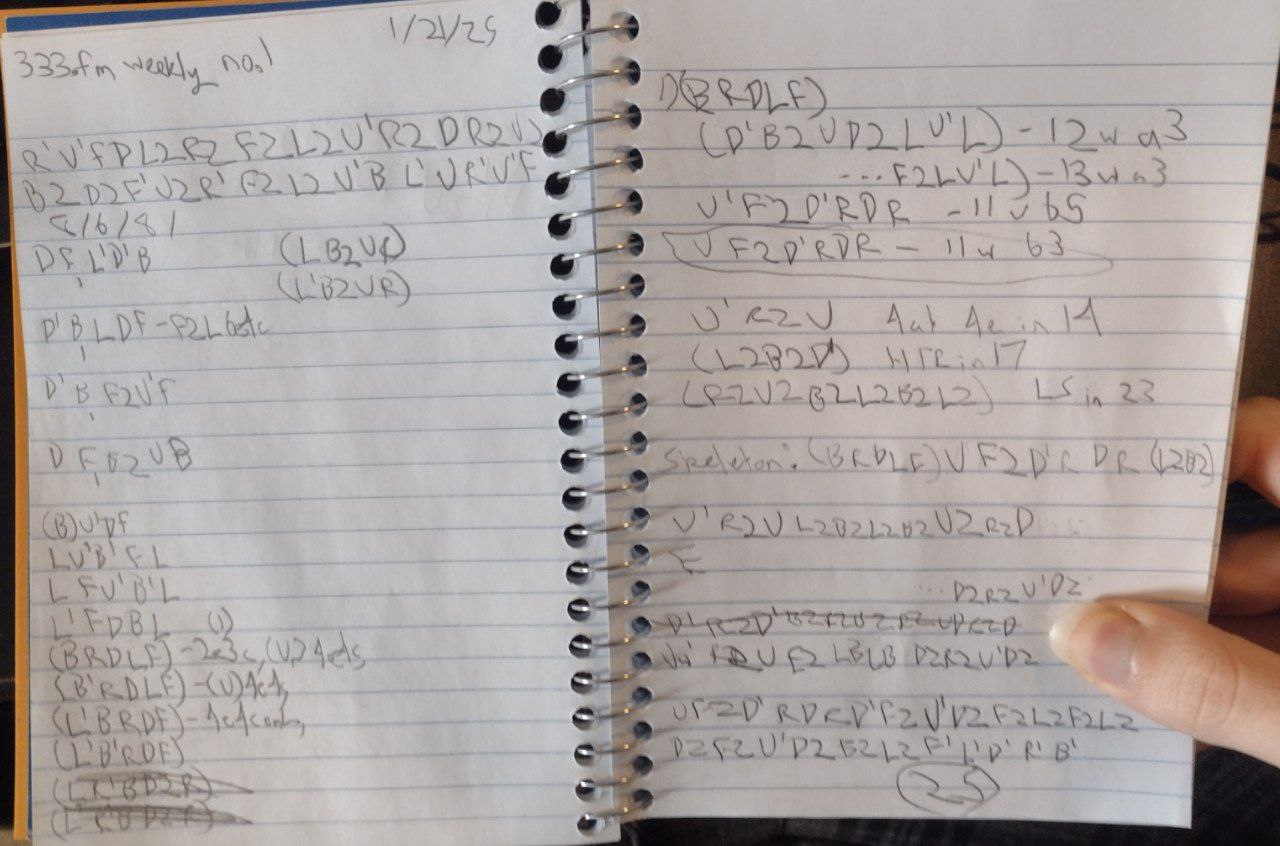 1/21/25
333.fm weekly no.1
R'U'FDL2R2F2L2U'R2DR2U2
B2D2F'U2R'F2L2U'BL'UR'U'F
8/6/8/
DF,L'D'B (LB2UF)
(L'B2UR)
D'B,LDF-F2L
D'B,F2U'F
DF,B2UB
(B)U'DF
LU'B'FL
LFU'B'L
L'FDBL (1)
(BRDLF)-2e3c,(U)
(B'RDLF)-(U)
(L'BRDF)-
(L'B'RDF)
1)(BRDLF)
(D'B2UD2LU'L)-12w a3
...F2LU'L)-13w a3
U'F2D'RDR -11w b5
UF2D'RDR-11w b3
U'R2U 4a1 4e in 14
(L2B2D) HTR in 17
(R2U2B2L2B2L2) LS in 23
Skeleton:(BRDLF)UF2D'RDR(L2B2)
U'R2UL2B2L2B2U2R2D
...D2R2U'D2
UF2 LBLB D2R2U'D2
UF2D'RDRD'F2U'D2F2L2F2L2
D2F2U'D2B2L2F'L'D'R'B'
25